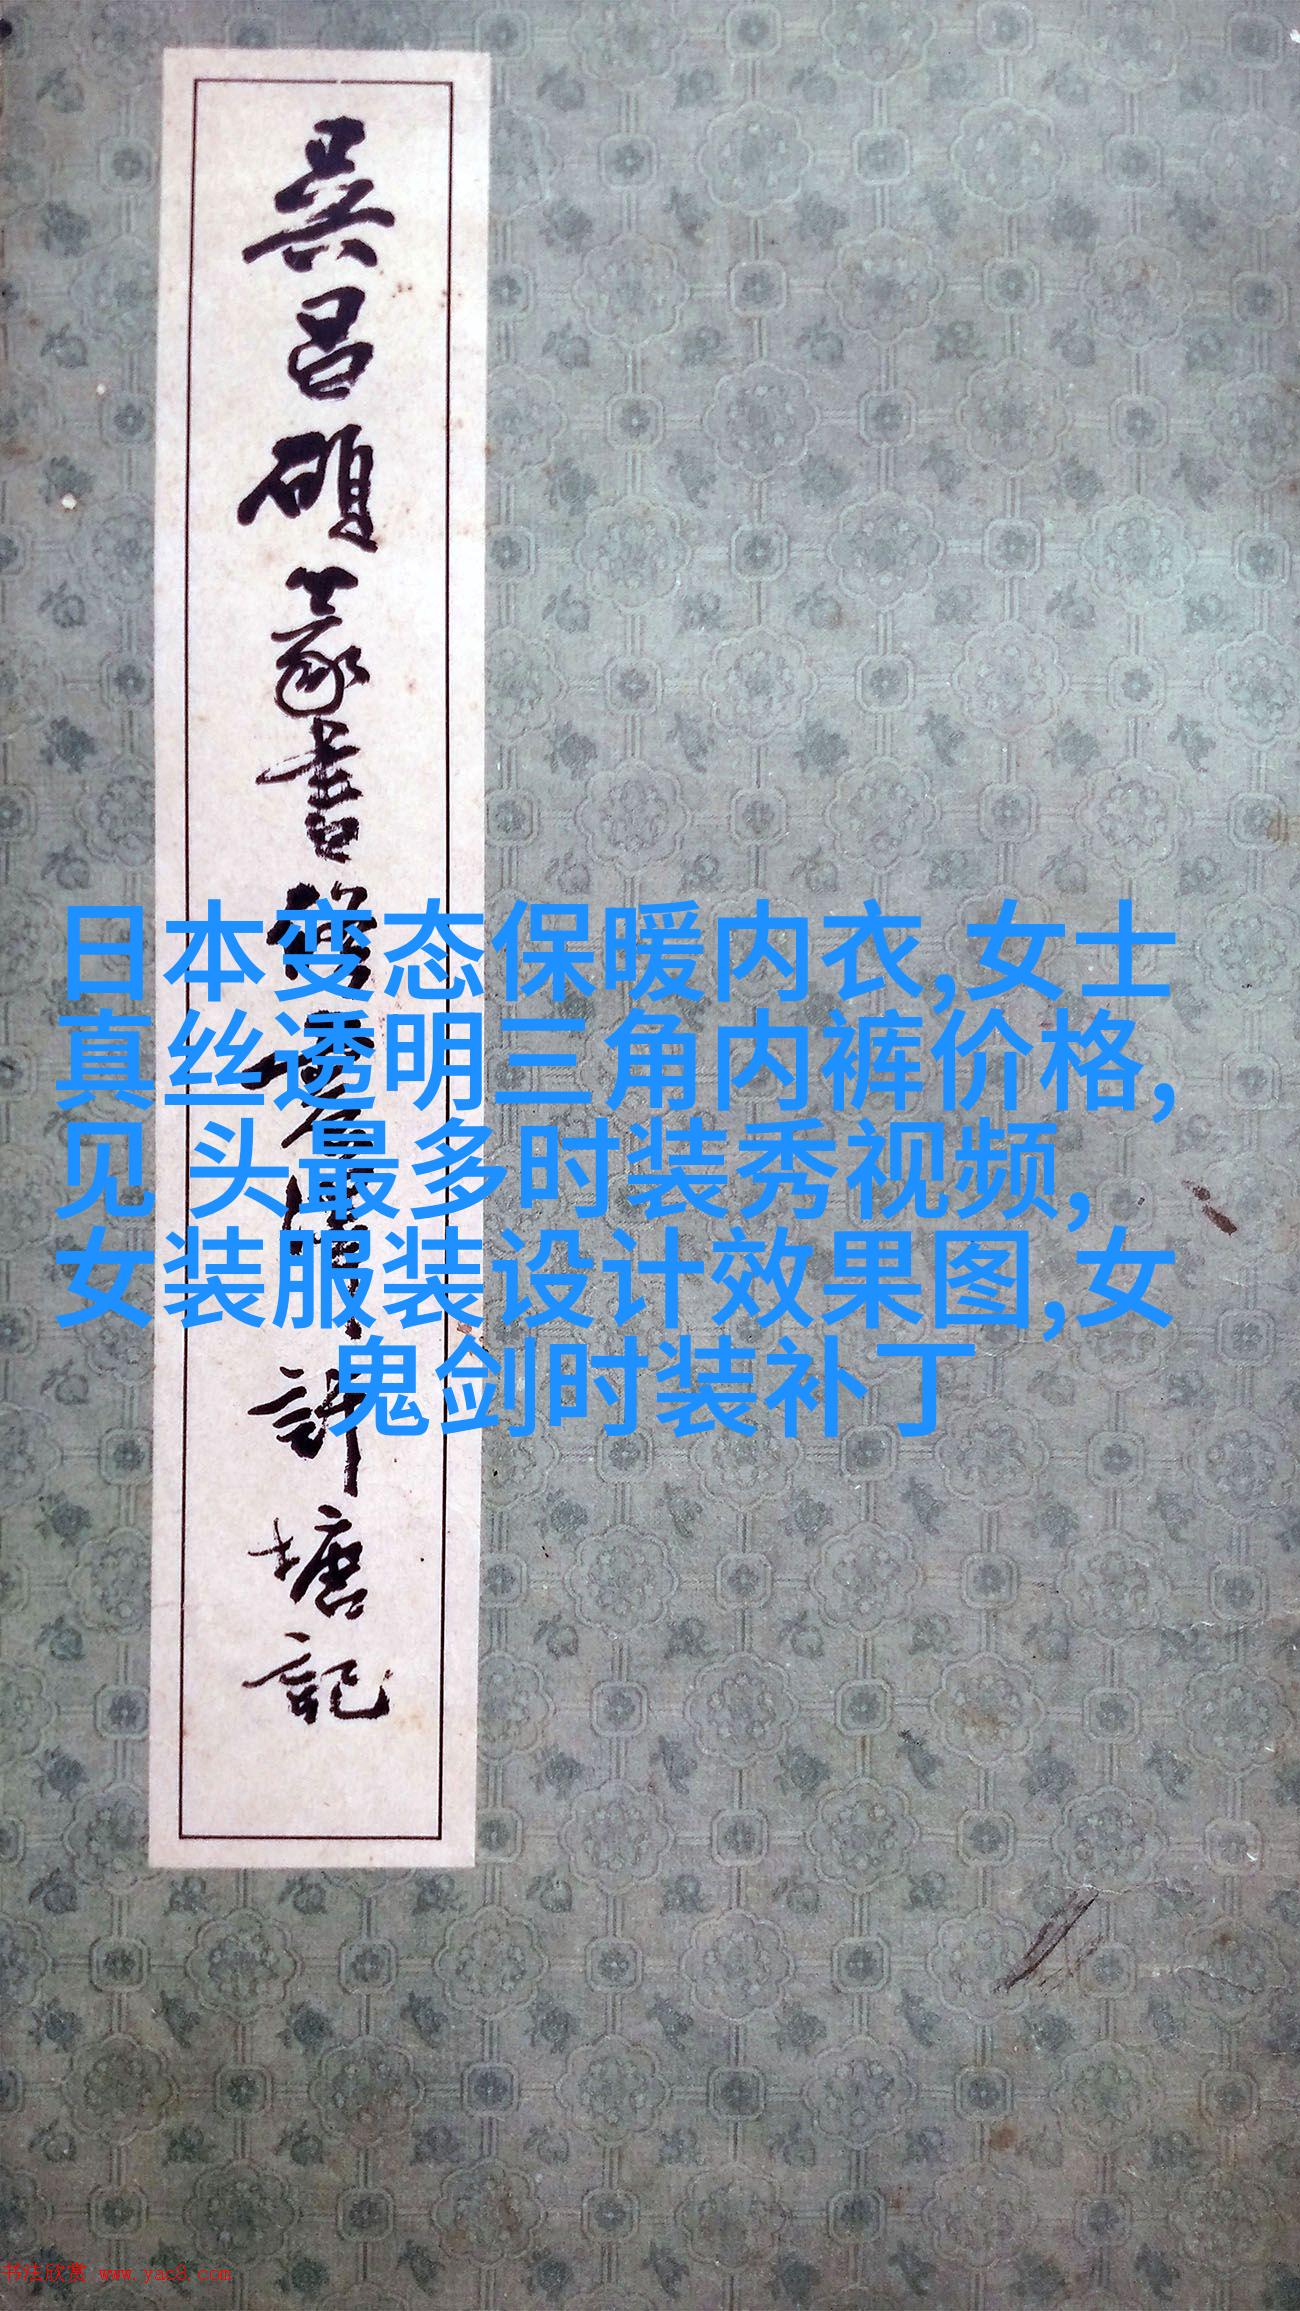 吴昌硕篆书
許塘記
日本变态保暖内衣,女士
真丝透明三角内裤价格,
见 头最多时装秀视频,
女装服装设计效果图,女
鬼剑时装补丁
书法欣赏 www.yac8.com